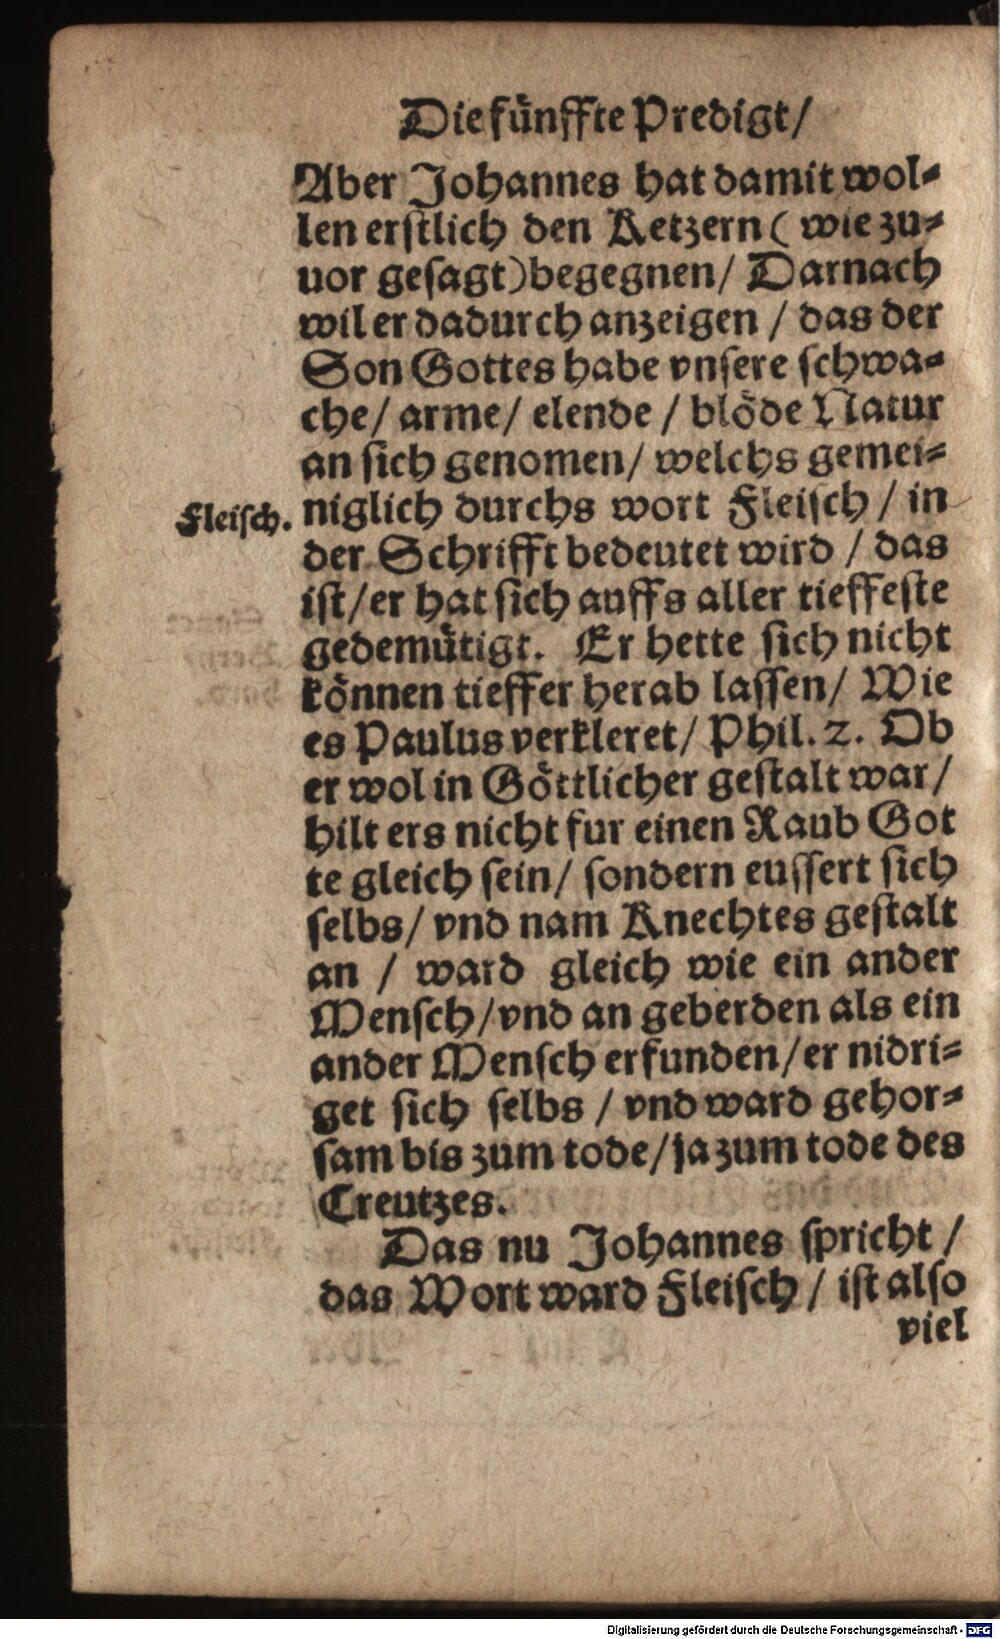 Die fünffte Predigt/
Aber Johannes hat damit wol⸗
len erſtlich den Ketzern ( wie zu⸗
uor geſagt) begegnen/ Darnach
wil er dadurch anzeigen / das der
Son Gottes habe vnſere ſchwa⸗
che/ arme/ elende / blöde Natur
an ſich genomen/ welchs gemei⸗
Fleiſch.
niglich durchs wort Fleiſch / in
der Schrifft bedeutet wird / das
iſt/er hat ſich auffs aller tieffeſte
gedemütigt. Er hette ſich nicht
können tieffer herab laſſen/ Wie
es Paulus verkleret/ Phil. 2. Ob
er wol in Göttlicher geſtalt war/
hilt ers nicht fur einen Raub Got
te gleich ſein/ ſondern euſſert ſich
ſelbs/ vnd nam Knechtes geſtalt
an / ward gleich wie ein ander
Menſch/vnd an geberden als ein
ander Menſch erfunden/er nidri⸗
get ſich ſelbs / vnd ward gehor⸗
ſam bis zum tode/ja zum tode des
Creutzes.
Das nu Johannes ſpricht /
das Wort ward Fleiſch / iſt alſo
viel
Digitalisierung gefördert durch die Deutsche Forschungsgemeinschaft - DFG